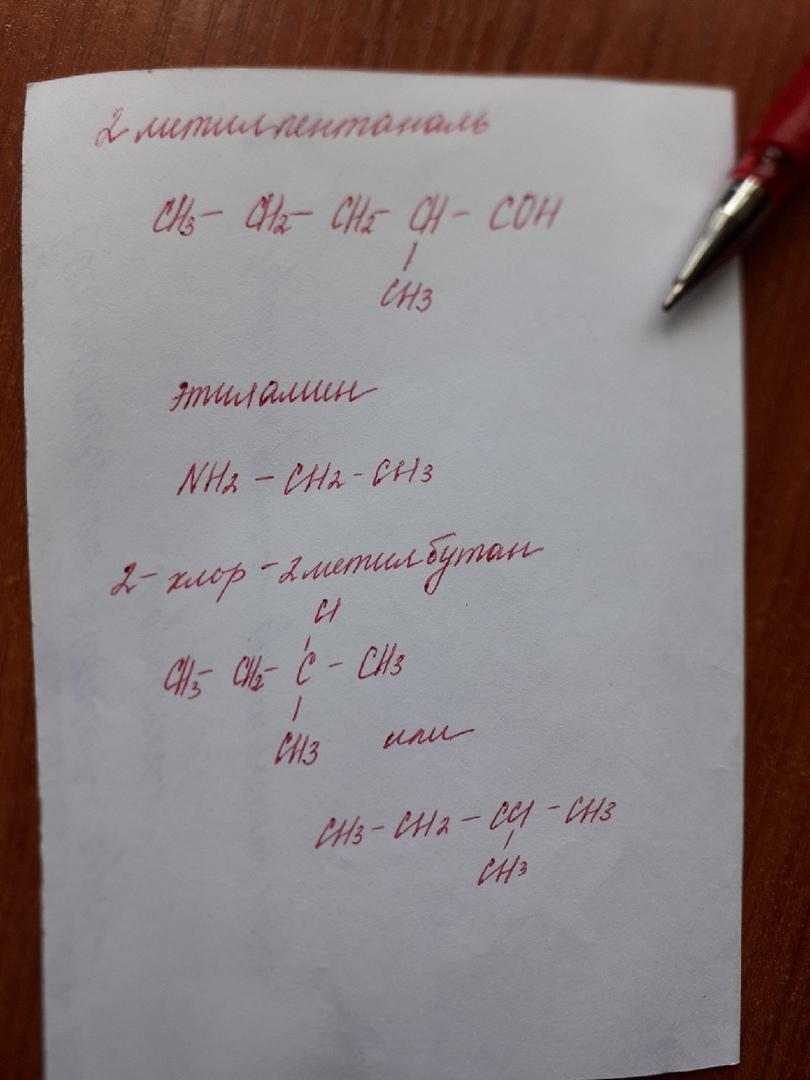 2 метилпентаналь
CH3 - CH2 - CH2 CH - COH
CH3
этиламин
NH2 - CH2 - CH3
2 - хлор - 2метилбутан
Cl
CH3 - CH2 - C - CH3
CH3 или
CH3 - CH2 - CCl - CH3
CH3